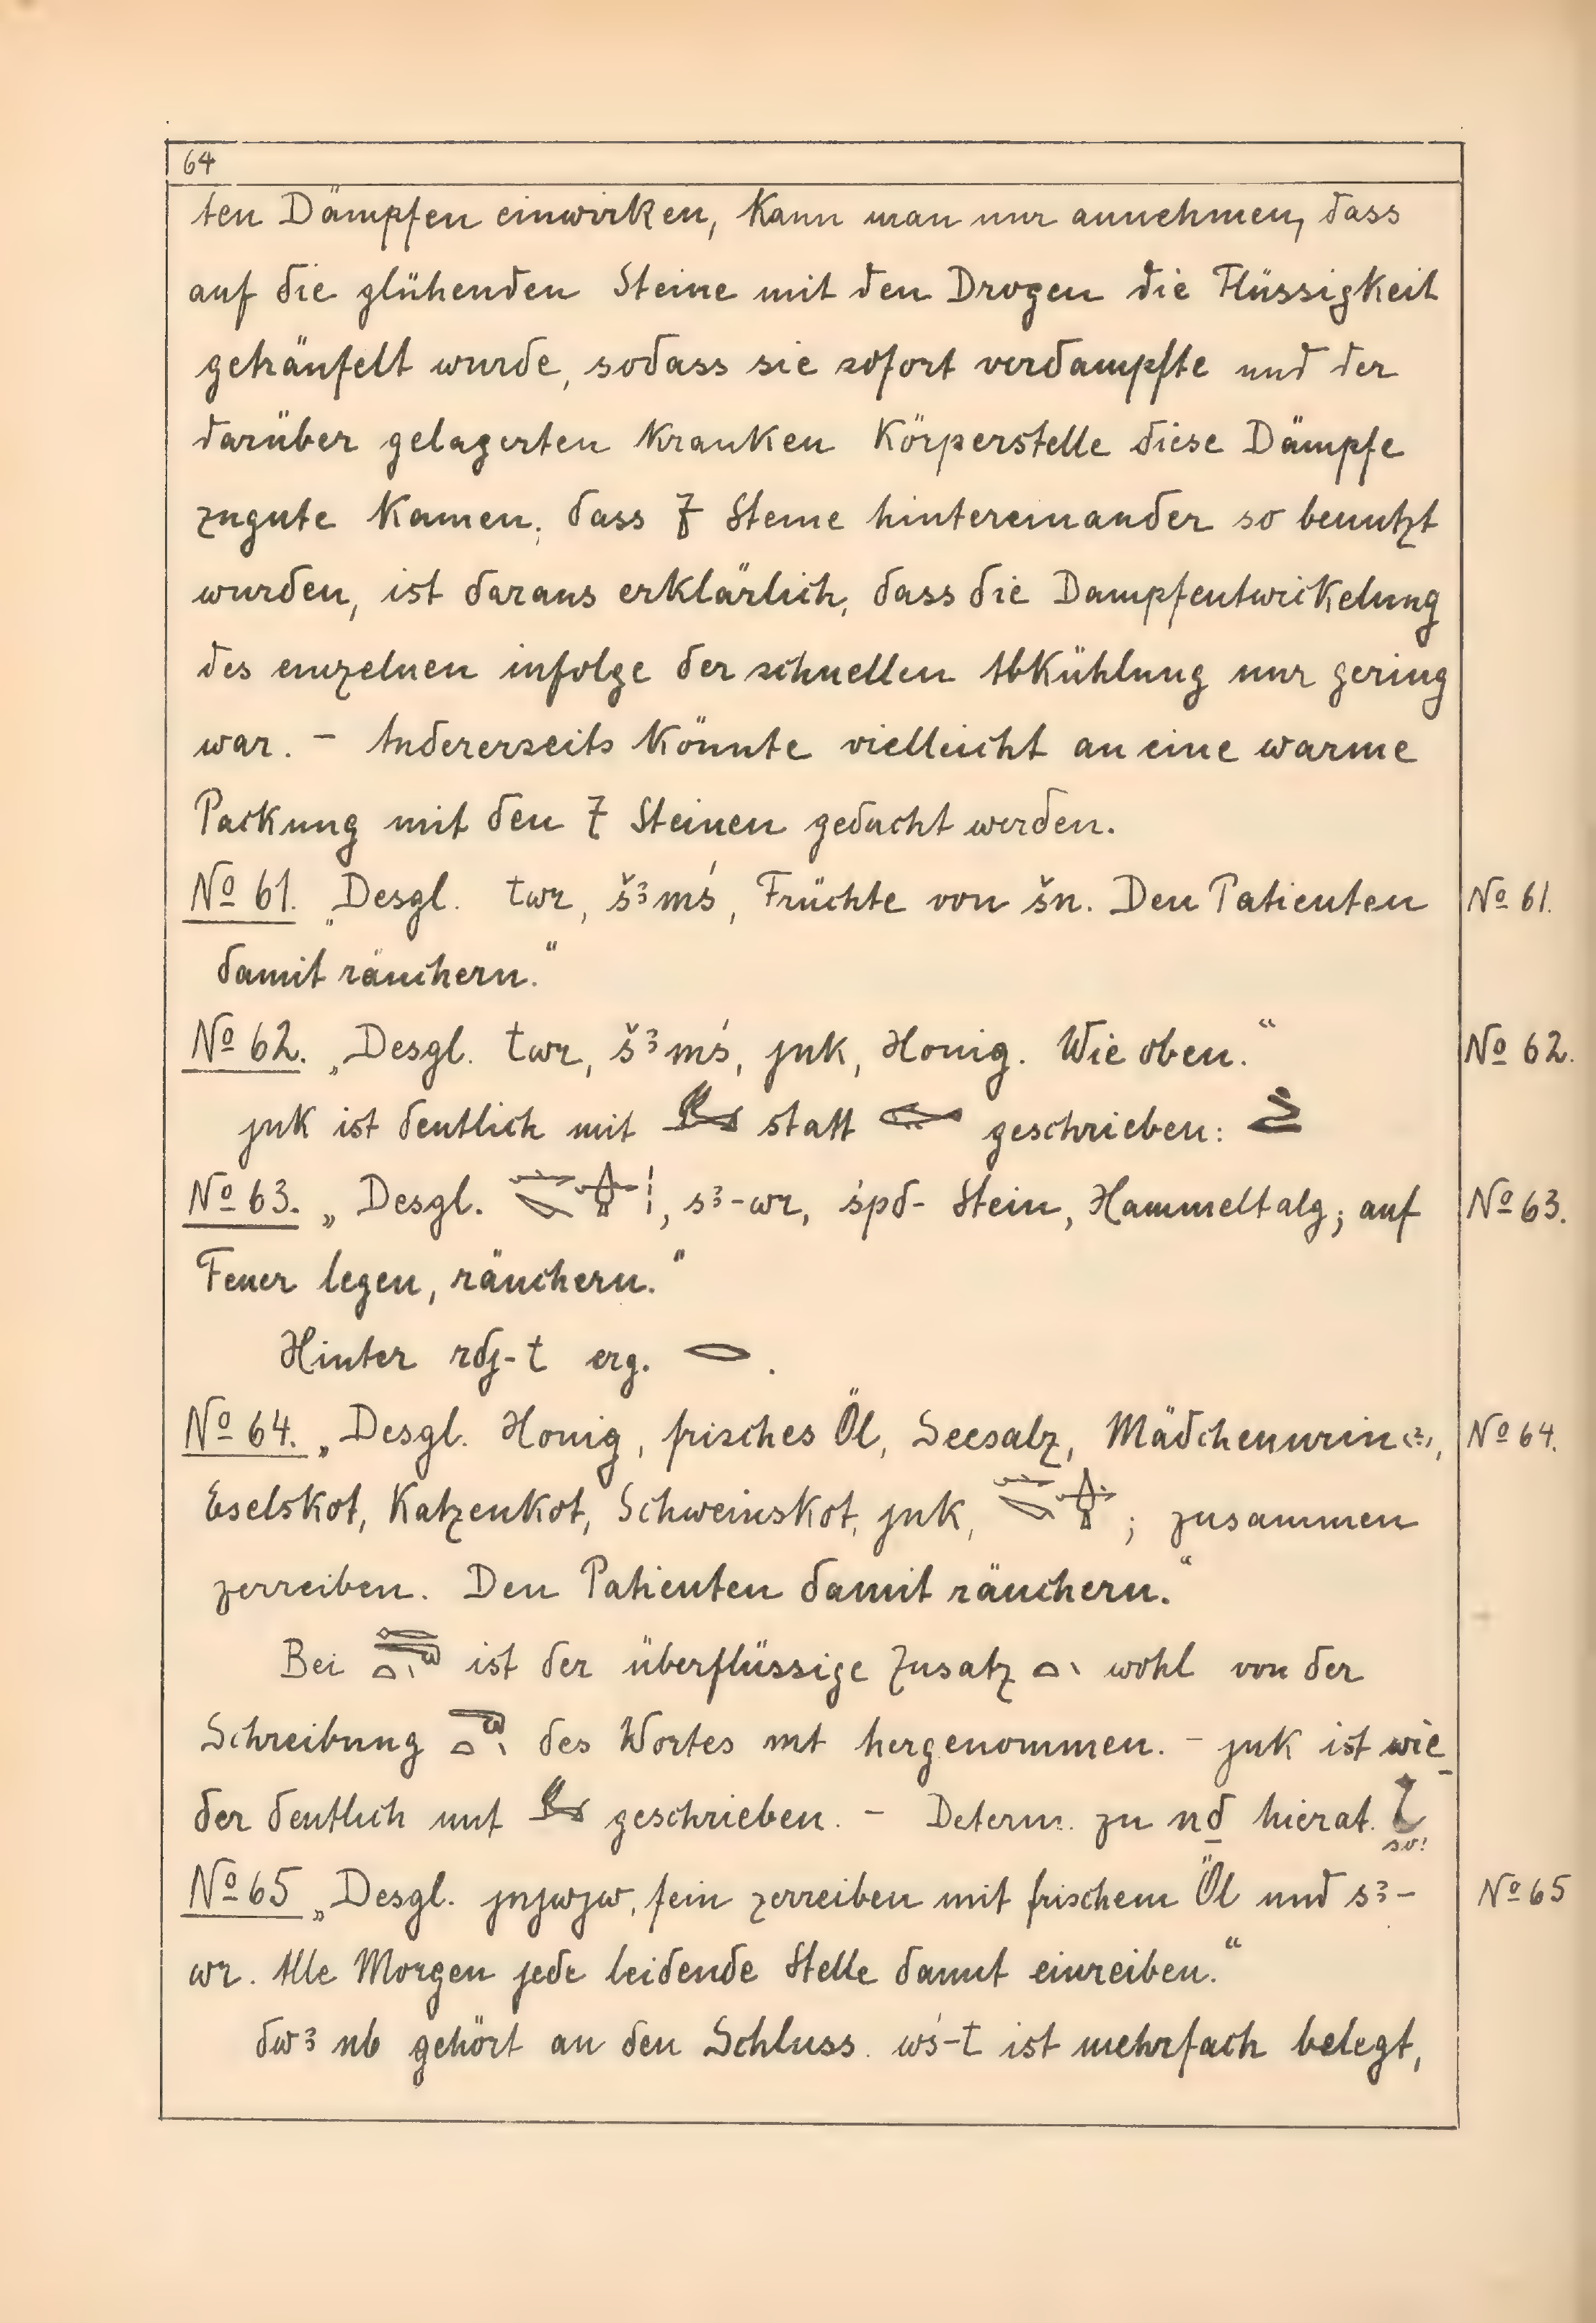 64
ten Dämpfen einwirken, kann man nur annehmen, dass
auf die glühenden Steine mit den Drogen die Flüssigkeit
geträufelt wurde, sodass sie sofort verdampfte und der
darüber gelagerten kranken Körperstelle diese Dämpfe
zugute kamen; dass 7 Steine hintereinander so benutzt
wurden, ist daraus erklärlich, dass die Dampfentwickelung
des einzelnen infolge der schnellen Abkühlung nur gering
war. – Andererseits könnte vielleicht an eine warme
Packung mit den 7 Steinen gedacht werden.
No 61. „Desgl. twr, šꜣmś, Früchte von šn. Den Patienten No 61.
damit räuchern.“
No 62. „Desgl. twr, šꜣmś, jnk, Honig. Wie oben.“ No 62.
jnk ist deutlich mit statt geschrieben:
No 63. „Desgl. , sꜣ-wr, śpd-Stein, Hammeltalg; auf No 63.
Feuer legen, räuchern.“
Hinter rdj-t erg. 𓂋.
No 64. „Desgl. Honig, frisches Öl, Seesalz, Mädchenurin(?), No 64.
Eselskot, Katzenkot, Schweinskot, jnk, ; zusammen
zerreiben. Den Patienten damit räuchern.“
Bei ist der überflüssige Zusatz wohl von der
Schreibung des Wortes mt hergenommen. – jnk ist wie-
der deutlich mit geschrieben. – Determ. zu nḏ hierat. so!
No 65 „Desgl. jnjwjw, fein zerreiben mit frischem Öl und sꜣ- No 65
wr. Alle Morgen jede leidende Stelle damit einreiben.“
dwꜣ nb gehört an den Schluss. wś-t ist mehrfach belegt,